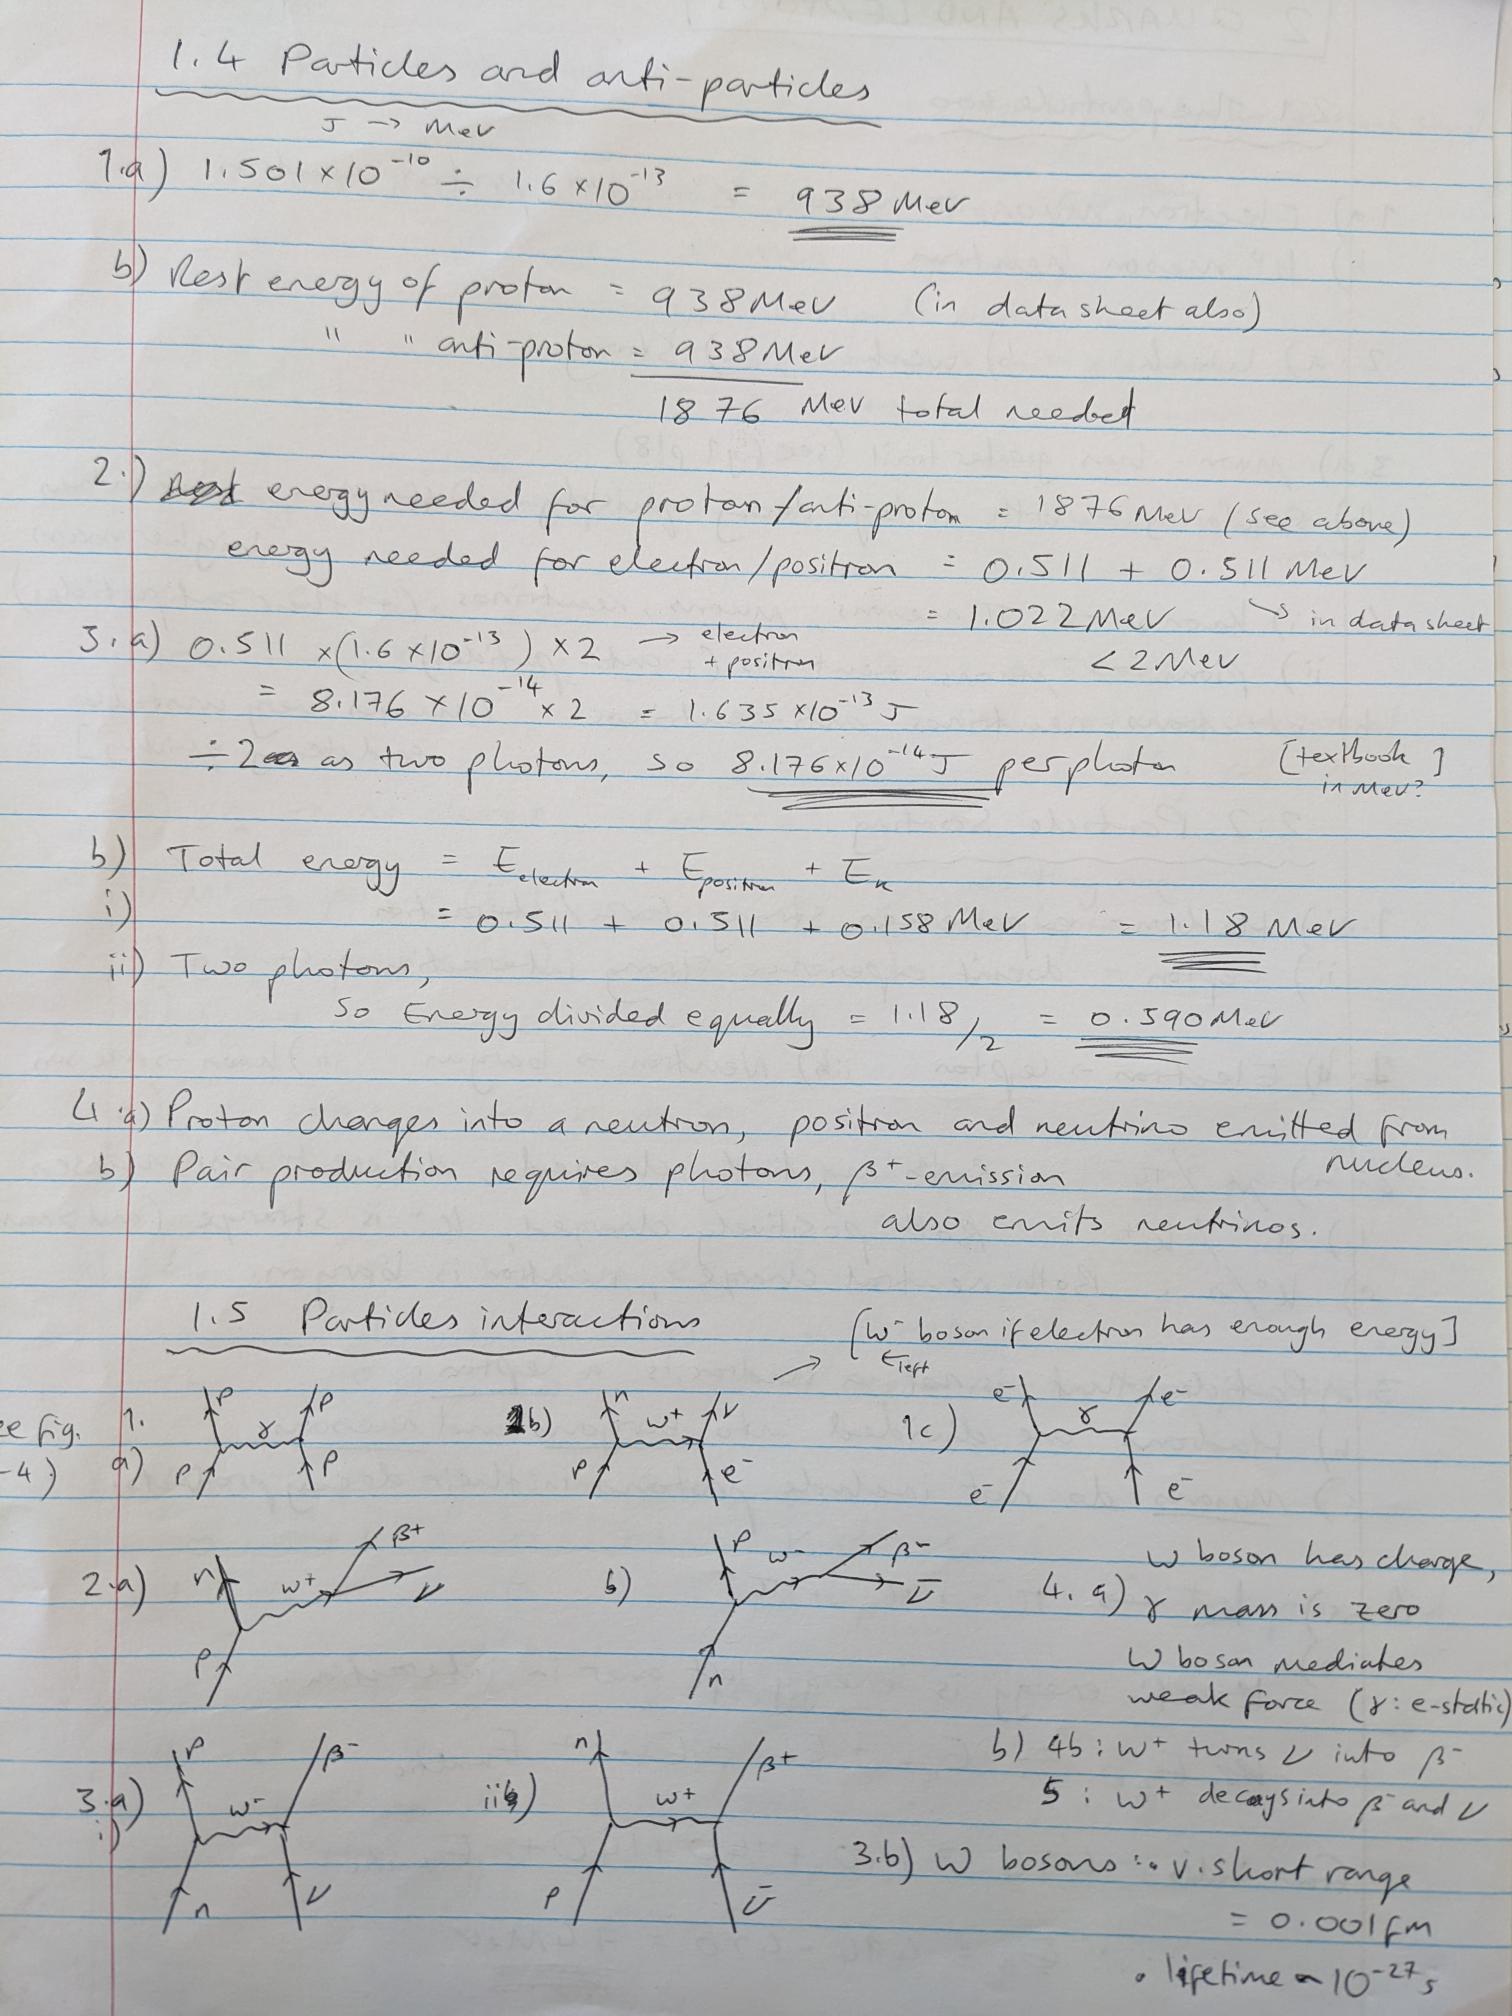 1.4 Particles and anti-particles
J → MeV
1.a) 1.501 × 10⁻¹⁰ ÷ 1.6 × 10⁻¹³ = 938 MeV
b) Rest energy of proton = 938 MeV (in data sheet also)
" " anti-proton = 938 MeV
1876 MeV total needed
2.) energy needed for proton/anti-proton = 1876 MeV (see above)
energy needed for electron/positron = 0.511 + 0.511 MeV
= 1.022 MeV ↳ in data sheet
< 2 MeV
3.a) 0.511 × (1.6 × 10⁻¹³) × 2 → electron + positron
= 8.176 × 10⁻¹⁴ × 2 = 1.635 × 10⁻¹³ J
÷ 2 as two photons, so 8.176 × 10⁻¹⁴ J per photon [textbook in MeV?]
b) Total energy = E electron + E positron + Eₖ
i) = 0.511 + 0.511 + 0.158 MeV = 1.18 MeV
ii) Two photons,
so Energy divided equally = 1.18/2 = 0.590 MeV
4.a) Proton changes into a neutron, positron and neutrino emitted from nucleus.
b) Pair production requires photons, β⁺-emission
also emits neutrinos.
1.5 Particles interactions
[W⁻ boson if electron has enough energy]
← left
ee fig.
-4)
1.
a) p p γ p p
1b) n W⁺ ν p e⁻
1c) e⁻ γ e⁻ e⁻ e⁻
2.a) n W⁺ β⁺ ν p
b) p W⁻ β⁻ ν̄ n
4. a) W boson has charge,
γ mass is zero
W boson mediates
weak force (γ: e-static)
b) 4b: W⁺ turns ν into β⁻
5: W⁺ decays into β⁻ and ν
3.a)
i) p W⁻ β⁻ n ν
ii) n W⁺ β⁺ p ν̄
3.b) W bosons: • v. short range
= 0.001 fm
• lifetime ~ 10⁻²⁷ s